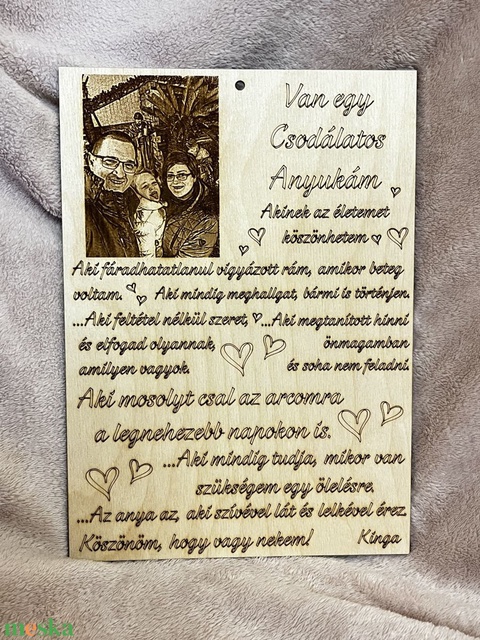 Van egy
Csodálatos
Anyukám
Akinek az életemet
köszönhetem
Aki fáradhatatlanul vigyázott rám, amikor beteg
voltam. Aki mindig meghallgat, bármi is történjen.
...Aki feltétel nélkül szeret, ...Aki megtanított hinni
és elfogad olyannak, önmagamban
amilyen vagyok. és soha nem feladni.
Aki mosolyt csal az arcomra
a legnehezebb napokon is.
...Aki mindig tudja, mikor van
szükségem egy ölelésre.
...Az anya az, aki szívével lát és lelkével érez.
Köszönöm, hogy vagy nekem! Kinga
meska